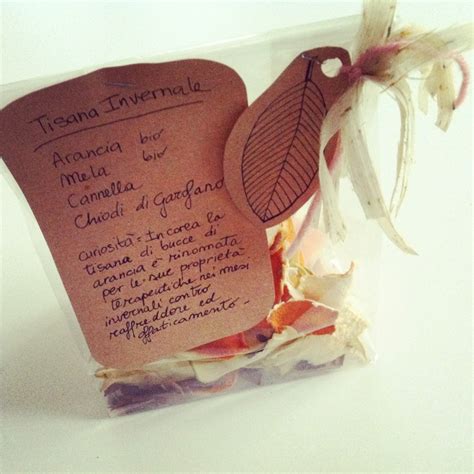 Tisana Invernale
Arancia bio
Mela bio
Cannella
Chiodi di Garofano
curiosità = In corea la
tisana di bucce di
arancia è rinomata
per le sue proprietà
terapeutiche nei mesi
invernali contro
raffreddore ed
affaticamento -